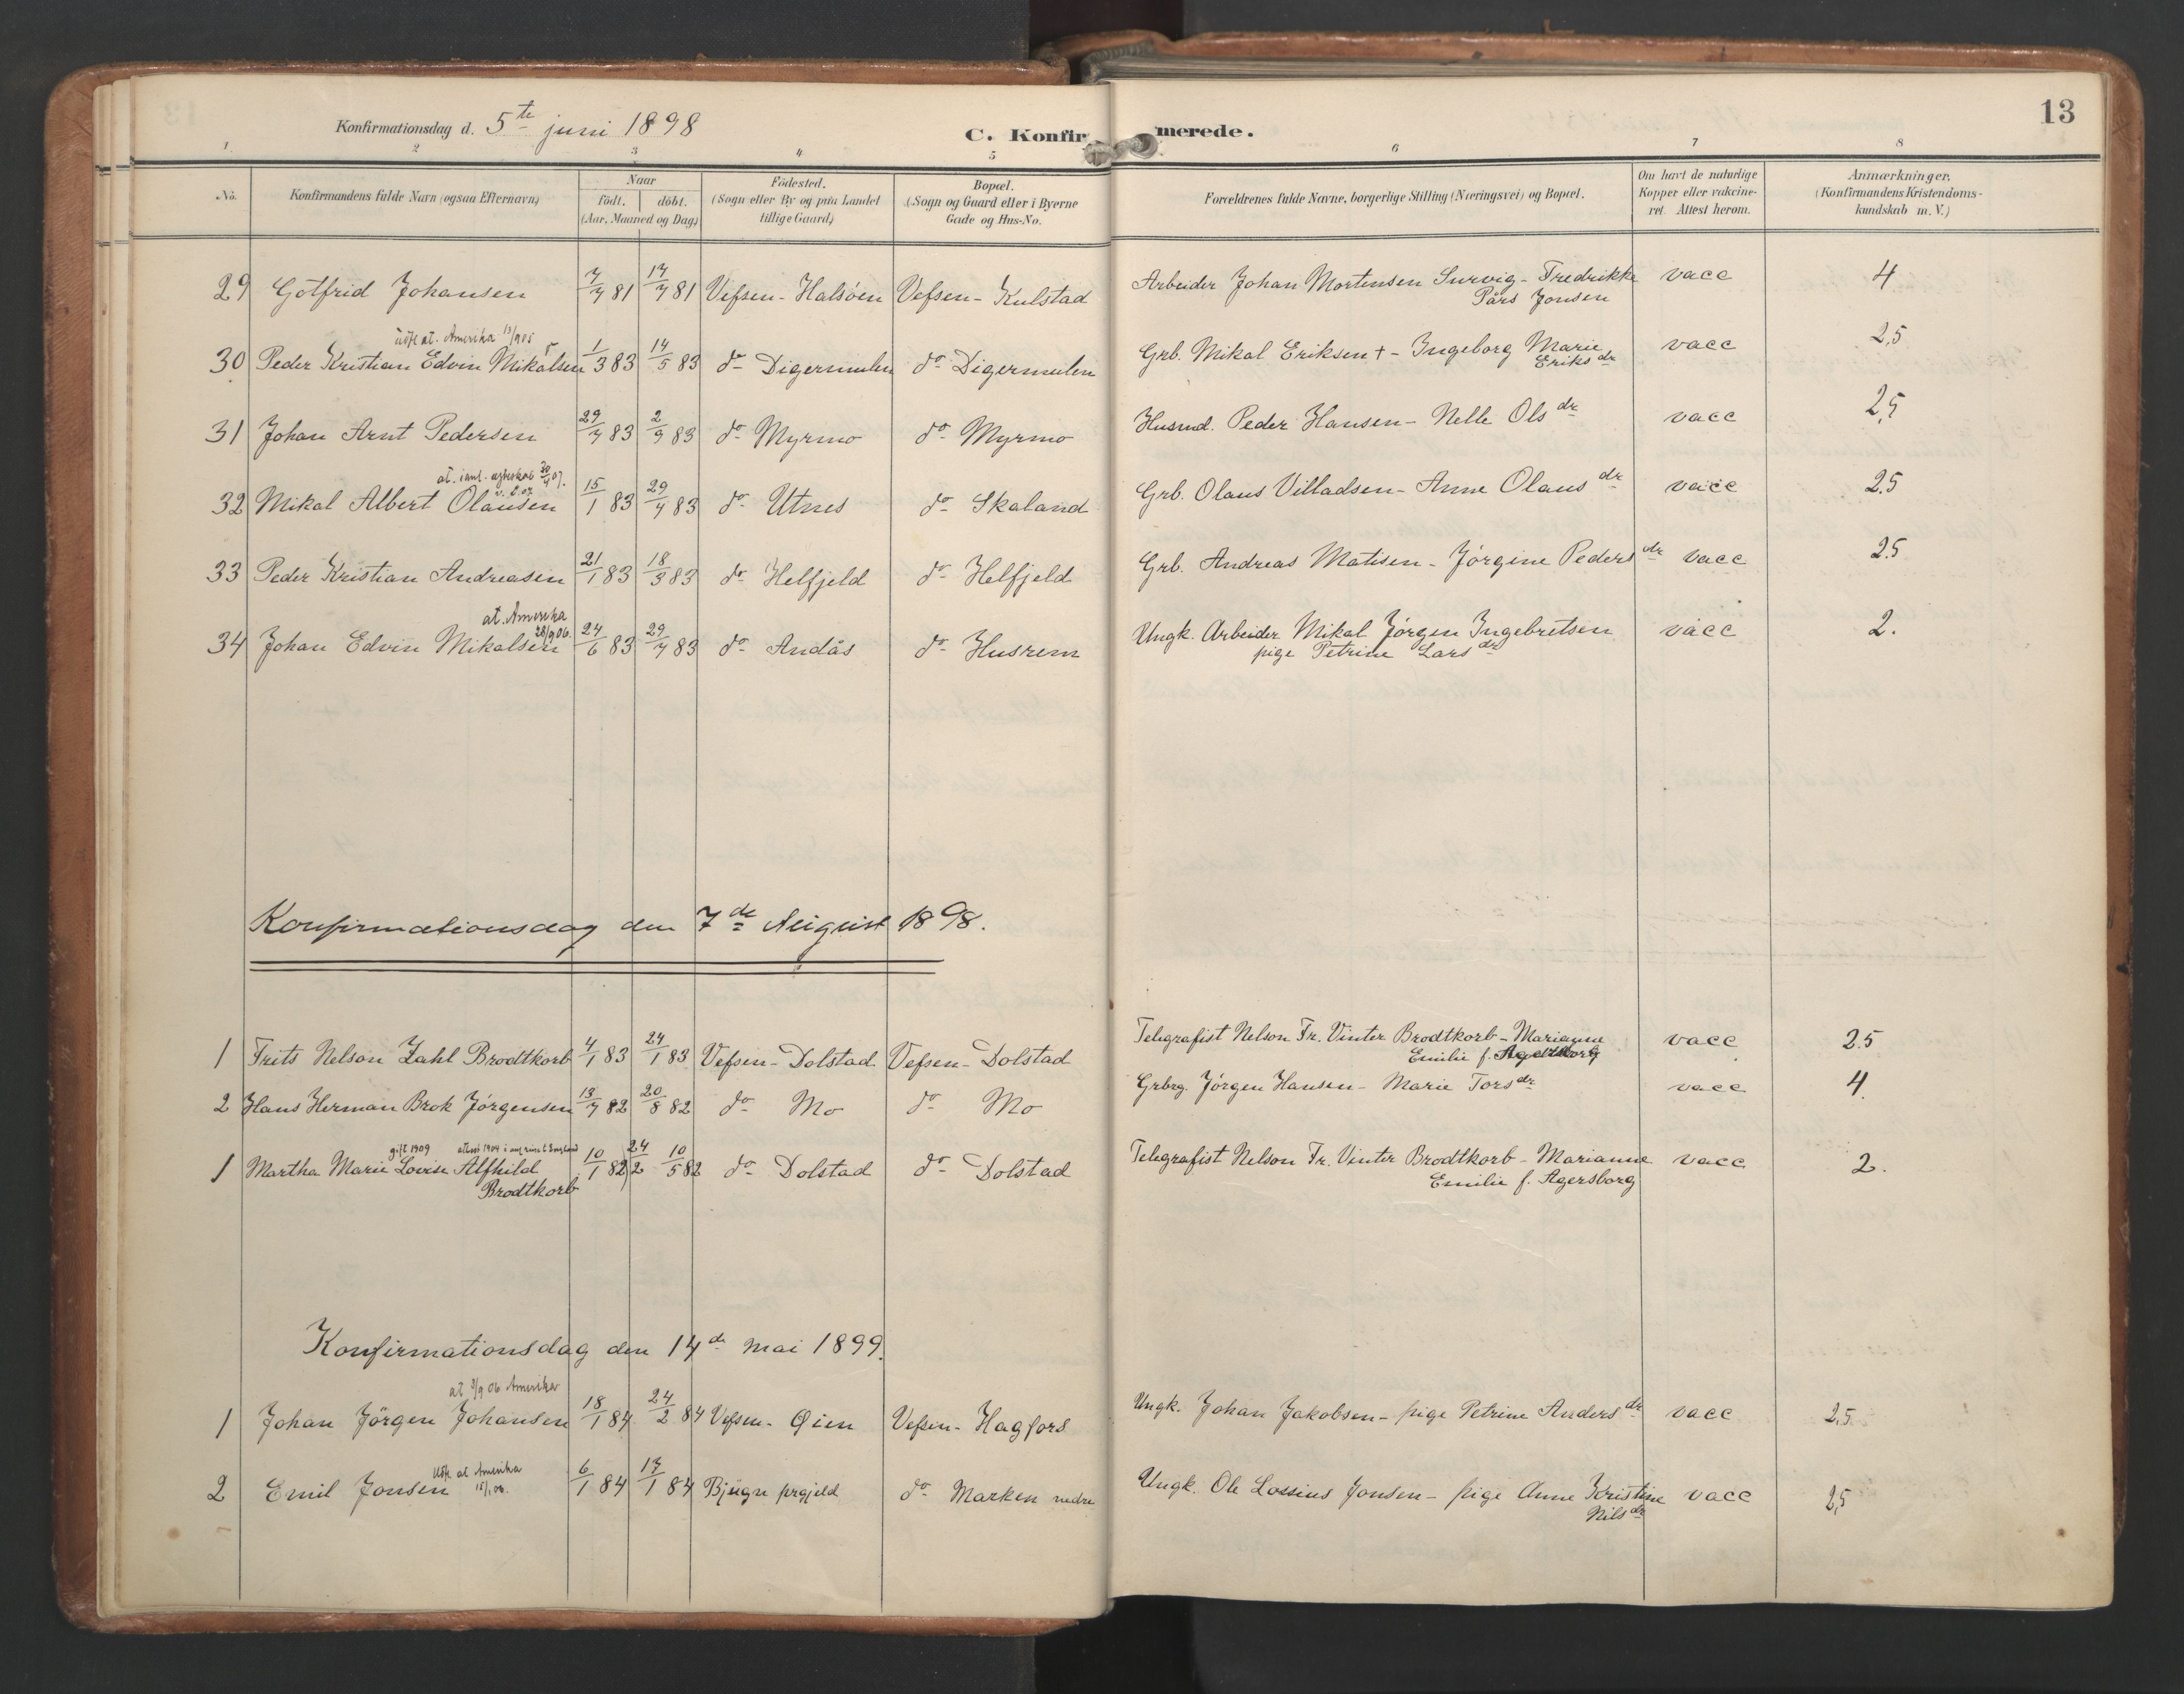 13
Konfirmationsdag d. 5te juni 1898
C. Konfirmerede.
1. 2 3 4 5 6 7 8
No. Konfirmandens fulde Navn (ogsaa Efternavn) Naar födt. döbt. (Aar, Maaned og Dag) Födested. (Sogn eller By og paa Landet tillige Gaard) Bopæl. (Sogn og Gaard eller i Byerne Gade og Hus-No. Forældrenes fulde Navne, borgerlige Stilling (Næringsvei) og Bopæl. Om havt de naturlige Kopper eller vakcineret. Attest herom. Anmærkninger, (Konfirmandens Kristendomskundskab m. V.)
29 Gotfrid Johansen 7/7 81 17/7 81 Vefsen - Halsöen Vefsen - Kulstad Arbeider Johan Mortensen Survig - Fredrikke vacc 4
Pårs Jonsen
udfl. at. Amerika 13/9 05
30 Peder Kristian Edvin Mikalsen 1/3 83 14/5 83 do Digermulen do Digermulen Grb. Mikal Eriksen + - Ingeborg Marie vacc 2,5
Eriksdr
31 Johan Arnt Pedersen 29/7 83 2/9 83 do Myrmo do Myrmo Husmd. Peder Hansen - Nelle Olsdr vacc 2,5
at. 07.
32 Mikal Albert Olausen 15/1 83 29/4 83 do Utnes do Skaland Grb. Olaus Villadsen - Anne Olausdr vacc 2.5
33 Peder Kristian Andreasen 21/1 83 18/3 83 do Helfjeld do Helfjeld Grb. Andreas Matisen - Jörgine Pedersdr vacc 2.5
at. Amerika
28/9 06.
34 Johan Edvin Mikalsen 24/6 83 29/7 83 do Andås do Husrem Ungk. Arbeider Mikal Jörgen Ingebretsen vacc 2.
pige Petrine Larsdr
Konfirmationsdag den 7de August 1898.
1 Frits Nelson Zahl Brodtkorb 4/1 83 24/1 83 Vefsen - Dolstad Vefsen - Dolstad Telegrafist Nelson Fr. Vinter Brodtkorb - Marianne vacc 2.5
Emilie f. Agersborg
2 Hans Herman Brok Jörgensen 13/7 82 20/8 82 do Mo do Mo Grbrg. Jörgen Hansen - Marie Torsdr vacc 4.
gift 1909 1904
1 Martha Marie Lovise Alfhild 10/1 82 24/2 10/5 82 do Dolstad do Dolstad Telegrafist Nelson Fr. Vinter Brodtkorb - Marianne vacc 2.
Brodtkorb Emilie f. Agersborg
Konfirmationsdag den 14de Mai 1899.
at 3/9 06 Amerika
1 Johan Jörgen Johansen 18/1 84 24/2 84 Vefsen - Øien Vefsen - Hagfors Ungk. Johan Jakobsen - pige Petrine Andersdr vacc 2,5
Udfl. at Amerika
2 Emil Jonsen 15/1 06. 6/1 84 17/1 84 Bjugn prgjeld do Marken nedre Ungk. Ole Lossius Jonsen - pige Anne Kristine vacc 2,5
Nilsdr